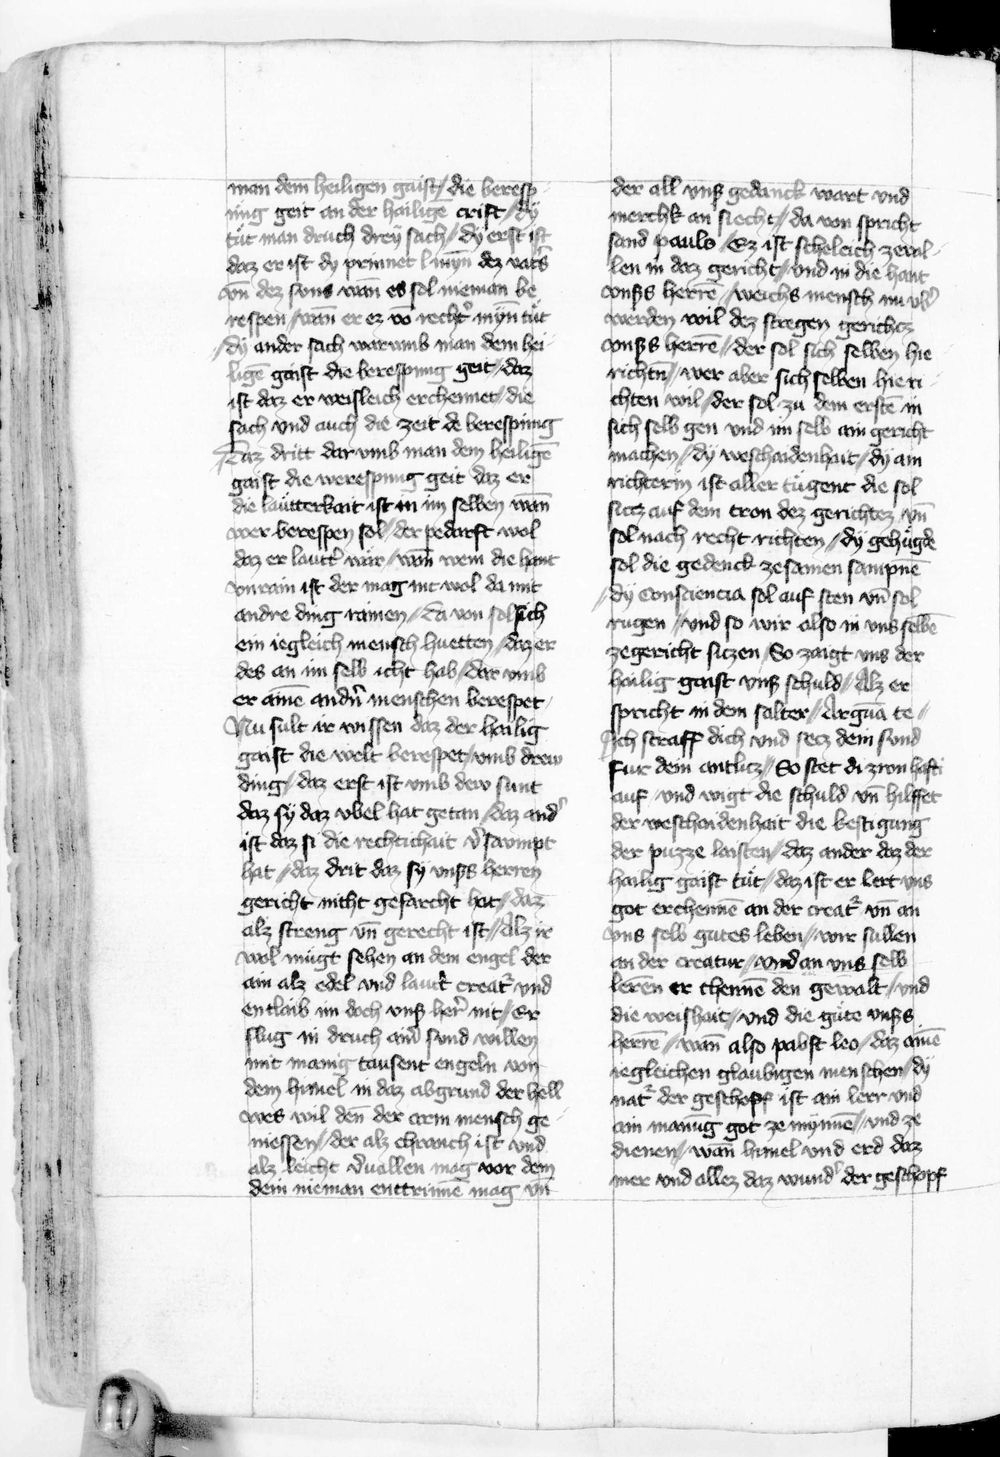 man dem heiligen gaist / die beresp
ning geit an der hailigē crift / dÿ
tüt man druch dreÿ sach // dy erst ist
daz er ist dy prinnet l mÿn dez vat̄s
vn̄ dez suns wan̄ es sol nieman be
respen / wan̄ er ez vō recht̄ mÿn̄ tüt
/ dÿ ander sach warumb man dem hei
ligē gaist die berespning geit / daz
ist daz er weisleich erchennet / die
sach vnd auch die zeit de berespning
Daz dritt dar vmb man dem heiligē
gaist die werespning geit daz er
die lautterkait ist in im selben wan̄
wer berespen sol / der pedarft wol
daz er lautt̄ wär / wan̄ wem die hant
vnrain ist der mag nit wol da mit
andre ding rainen // Da von sol sich
ein iegleich mensch huetten / daz er
des an im selb icht hab / dar vmb
er ainē and̄n menschen berespet
Nu sult ir wissen daz der hailig
gaist die welt berespet / vmb drew
ding / daz erst ist vmb dew sunt
daz sÿ daz vbel hat getan / daz and̄
ist daz si die rechtichait v̄sawmpt
hat // daz drit daz sÿ vnß̄s herren
gericht nicht gefarcht hat / daz
alz streng vn̄ gerecht ist // Alz ir
wol mügt sehen an dem engel der
ain alz edel vnd laut̄t creat̄ vnd
entlaib im doch vnß̄ her̄ nit / Er
slug in druch ain̄ sund willen
mit manig tausent engeln von
dem himel in daz abgrund der hell
wes wil den der arm mensch ge
niessen / der alz chranch ist vnd
alz leicht v̄uallen mag vor dem
dem nieman enttrinnē mag vn̄
der all vnß̄ gedanck wart vnd
merchk an siecht // da von spricht
sand pauls / Ez ist scheleich ze val
len in daz gericht / vnd in die hant
vnß̄s herrē // welchs mensch nu vb̄
werden wil dez stregen gerichtz
vnß̄s herrē // der sol sich selben hie
richtn̄ // wer aber sich selben hie ri
chten wil / der sol zu dem erstē in
sich selb gen vnd im selb ain gericht
machen / dÿ weschaidenhait / dÿ ain
richterin ist aller tügent die sol
sitz auf dem tron dez gerichtez vn̄
sol nach recht richten // dÿ gehügde
sol die gedenck zesamen sampnē
// dÿ Consciencia sol auf sten vn̄ sol
rugen // vnd so wir also in vns selbē
zegericht siczen / So zaigt vns der
hailig gaist vnß̄ schuld / Alz er
spricht in dem salter // Arguā te //
Ich straff dich vnd secz dem sund
fur dem antlicz // So stet di
auf / vnd wigt die schuld vn̄ hilffet
der weschaidenhait die bestigung
der puzze laisten / daz ander daz der
hailig gaist tüt // daz ist er lert vns
got erchennē an der creat̄ vn̄ an
vns selb gutes leben // wir sullen
an der creatur / vnd an vns selb
lernē er chennē den gewalt / vnd
die weishait / vnd die gute vnß̄s
herrē // wan̄ also pabst leo / daz ainē
iegleichen glaubigen menschen / dÿ
nat̄ der geschopf ist ain lerr vnd
ain manūg got ze mÿnnē / vnd ze
dienen / wan̄ himel vnd erd daz
mer vnd allez daz wund̄ der geschopf